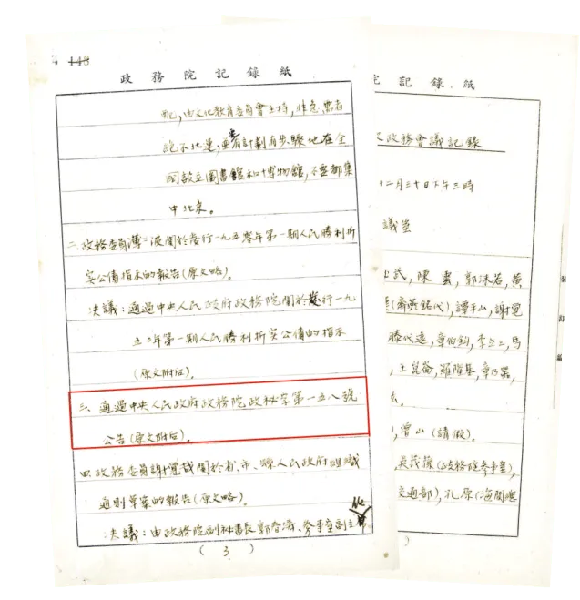 政務院記錄紙
配,由文化教育委員會主持,非急需者
說不北運,要有計劃有步驟地在全
國設立圖書館和博物館,不要都集
中北京。
二、政務委員薄一波關於發行一九五零年第一期人民勝利折
實公債指示的報告(原文略)。
決議:通過中央人民政府政務院關於發行一九
五〇年第一期人民勝利折實公債的指示
(原文附后)。
三、通過中央人民政府政務院政秘字第一五八號
公告(原文附后)。
四、政務委員謝覺哉關於省、市、縣人民政府組織
通則草案的報告(原文略)。
決議:由政務院副秘書長郭春濤、參事室副主
(3)
記錄紙
政務會議記錄
二月三十日下午三時
議室
武,陳雲,郭沫若,黃
(齊燕銘代),譚平山,謝覺
滕代遠,章伯鈞,李立三,馬
王崑崙,羅隆基,章乃器,
曾山(請假)。
吳茂蓀(政務院參事室),
交通部),孔原(海關總